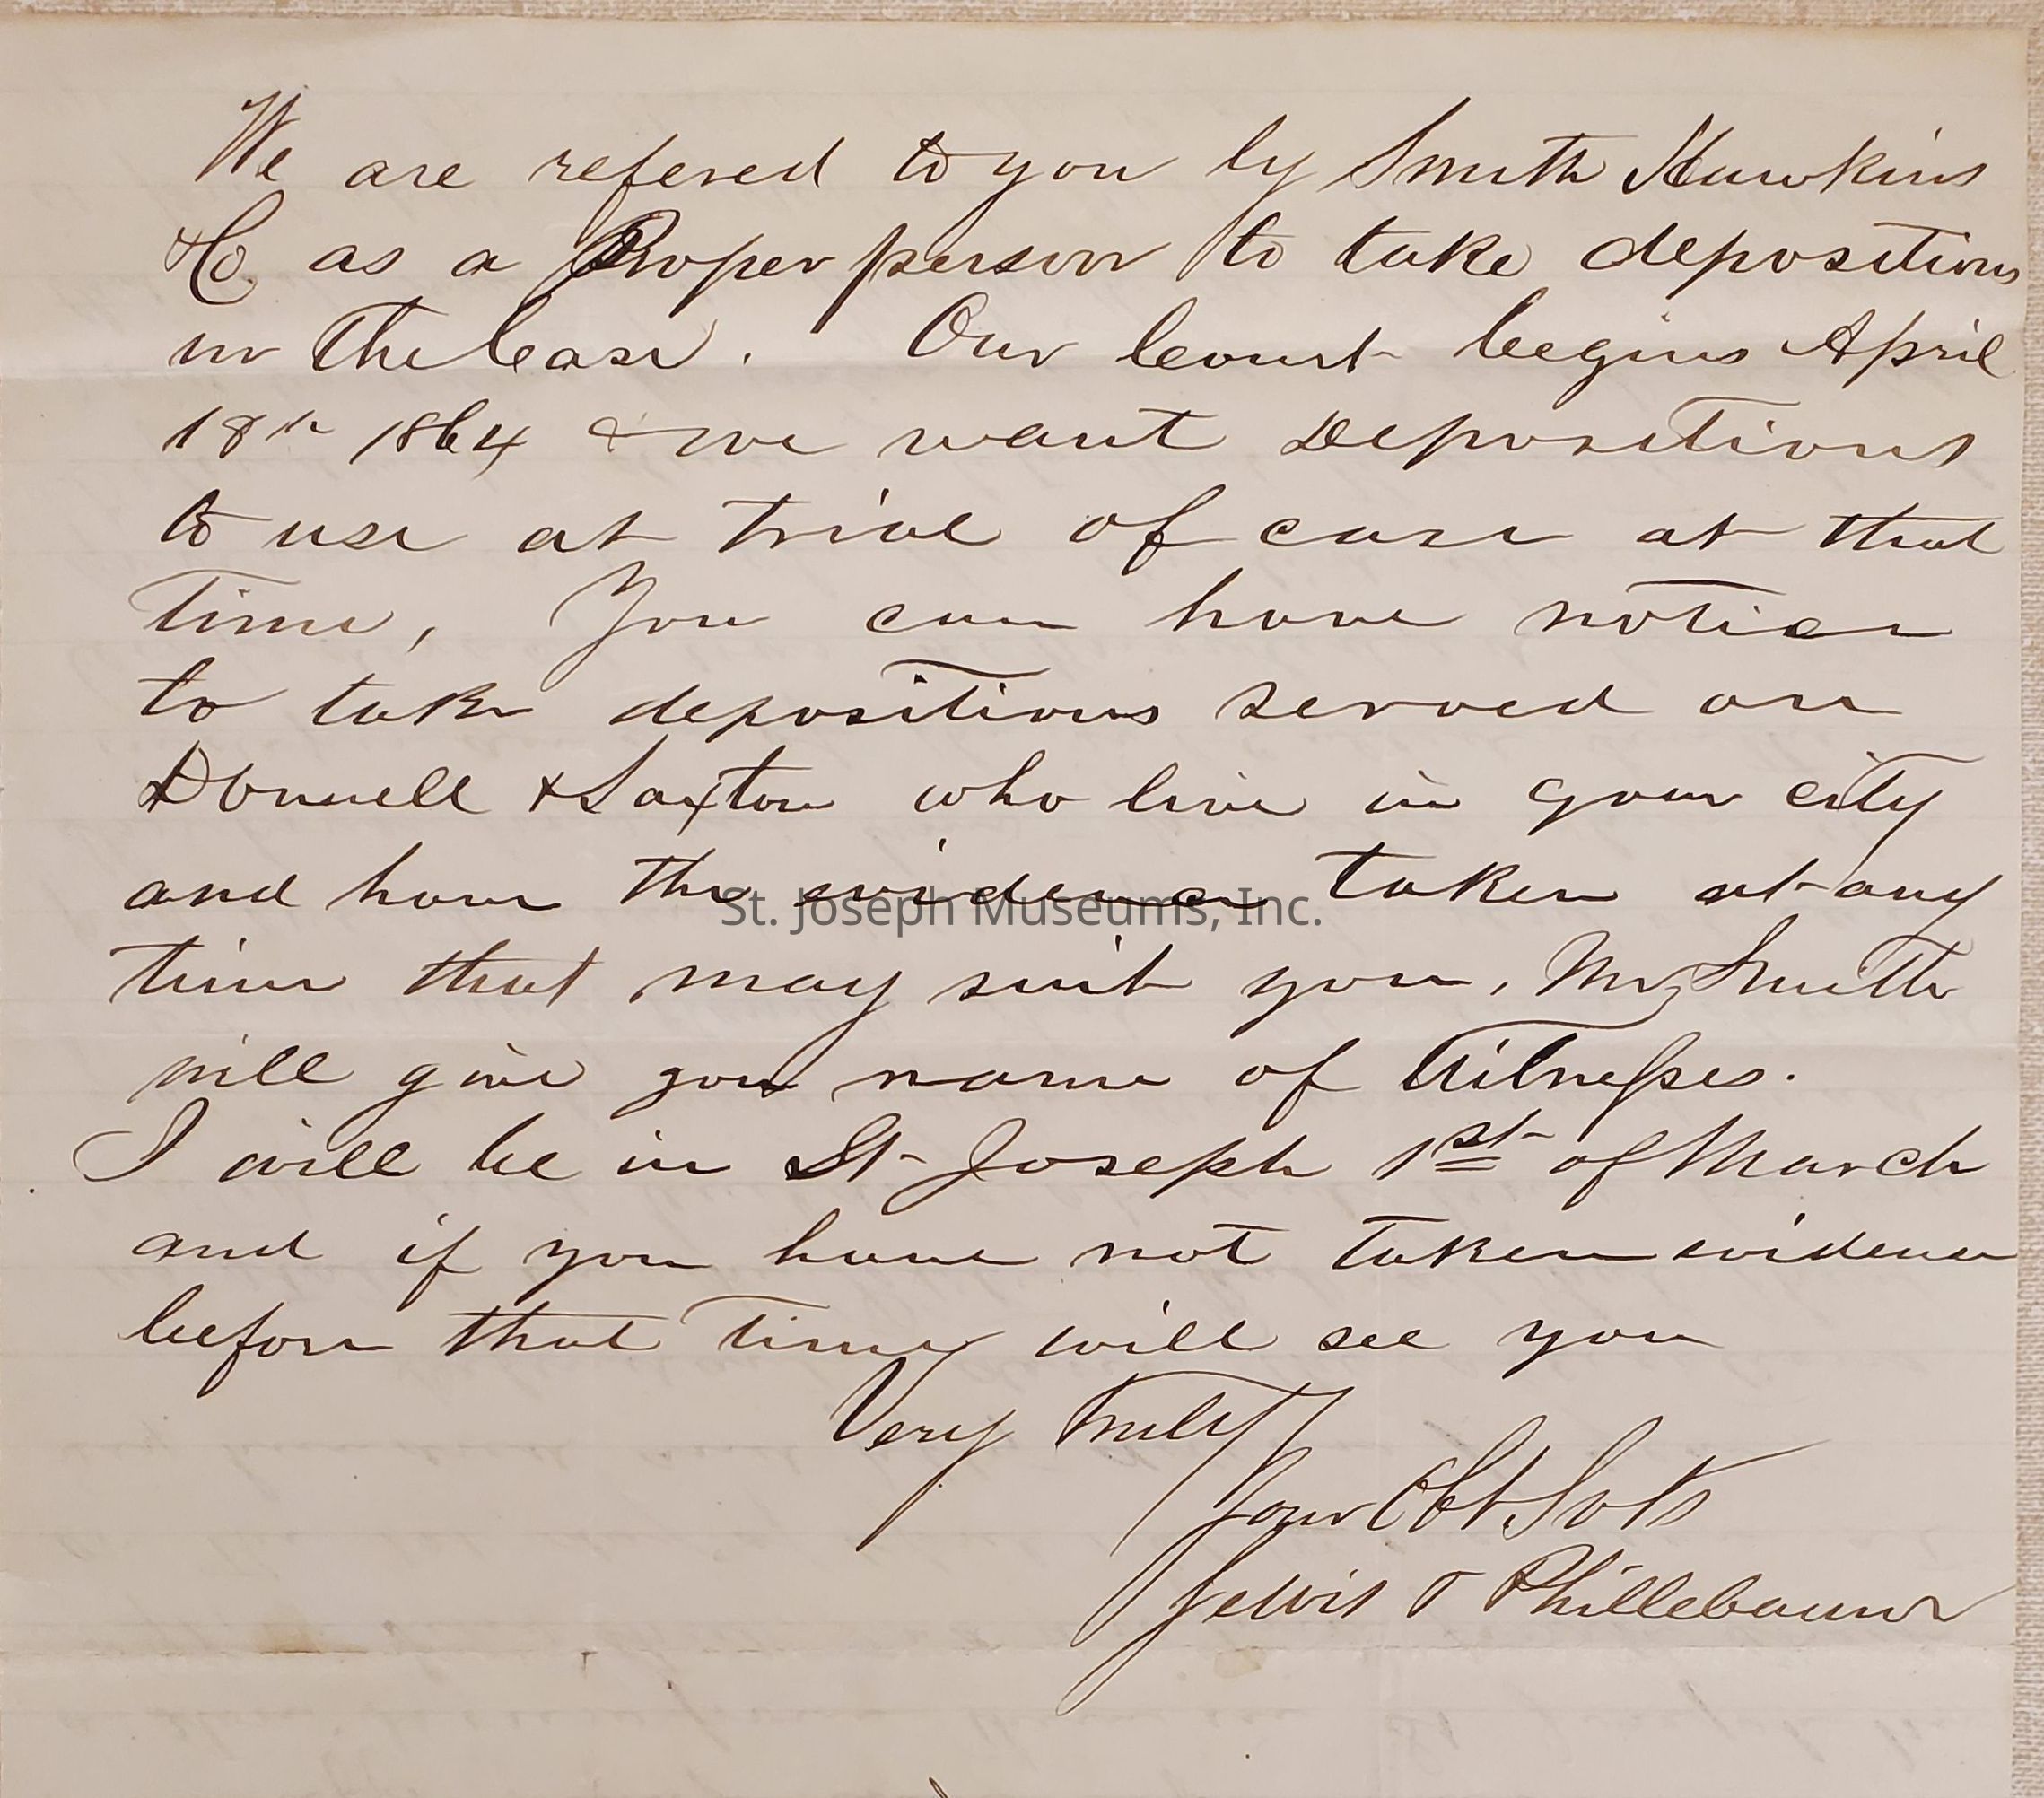 We are refered to you by Smith Hawkins
& Co. as a Proper person to take depositions
in the Case. Our Court begins April
18th 1864 & we want Depositions
to use at trial of case at that
Time, You can have notice
to take depositions served on
Donnell & Saxton who live in your city
and have the evidence taken at any
St. Joseph Museums, Inc.
time that may suit you, Mr Smith
will give you name of Witnesses.
I will be in St Joseph 1st of March
and if you have not taken evidence
before that Time will see you
Very Truly
Your Obt Svts
& Phillebaum